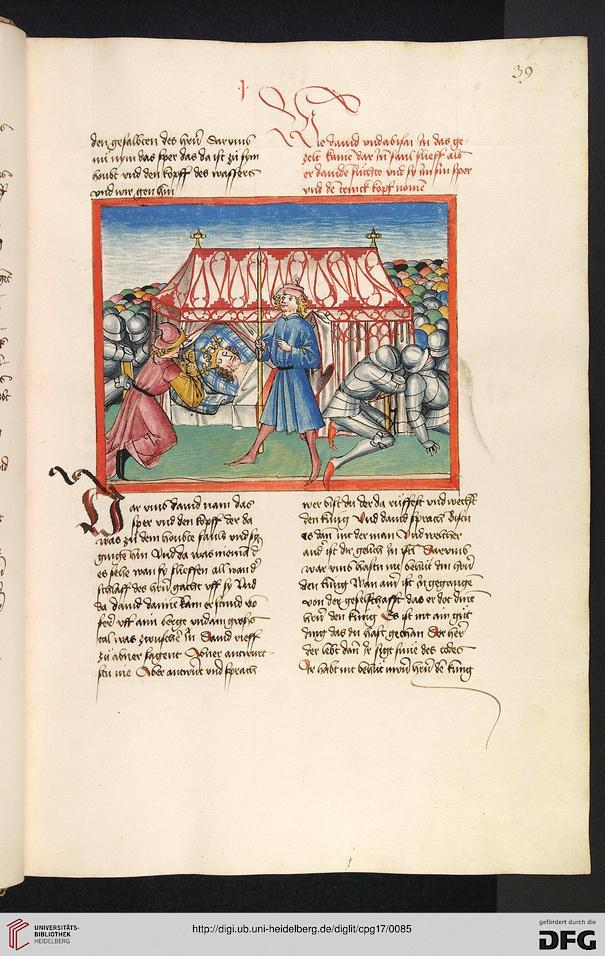 39
den gesalbten des hern Darumb
nü nym das sper das da ist zü sym
houbt vnd den kopff des wassers
vnd wir gen hin
Wie dauid vnd abisai in das ge-
zelt kame dar in saul slieff als
er dauide süchte vnd sy im sin sper
vnd de trinck kopf nomen
Dar vmb dauid nam das
sper vnd den kopff der da
was zü dem houbte sauls vnd sy
gienge hin Vnd da was nieman d
es sehe wan sy slieffen all wan d
schlaff des hern gacht vff sy Vnd
da dauid danne kam er stund vo
fer vff aim berge vnd ain groß
tal was zwusche in Dauid rieff
zü abner sagent Abner antwurt-
stu nie Aber antwurt vnd sprach
wer bist du der da rüffest vnd weckst
den künig Vnd dauid sprach
es dan nit der man Vnd welcher
and ist dir gelich in isrl Darumb
war vmb hastu nit behüt din hern
den künig Wan ainer ist in gegangen
von der geselschafft das er dot dine
hern den künig Es ist nit ain güt
ding das du hast gethan Der her
der lebt dan ir sigt süne des todes
Ir habt nit behüt uwern hern de künig
UNIVERSITÄTS-
BIBLIOTHEK
HEIDELBERG
http://digi.ub.uni-heidelberg.de/diglit/cpg17/0085
gefördert durch die
DFG